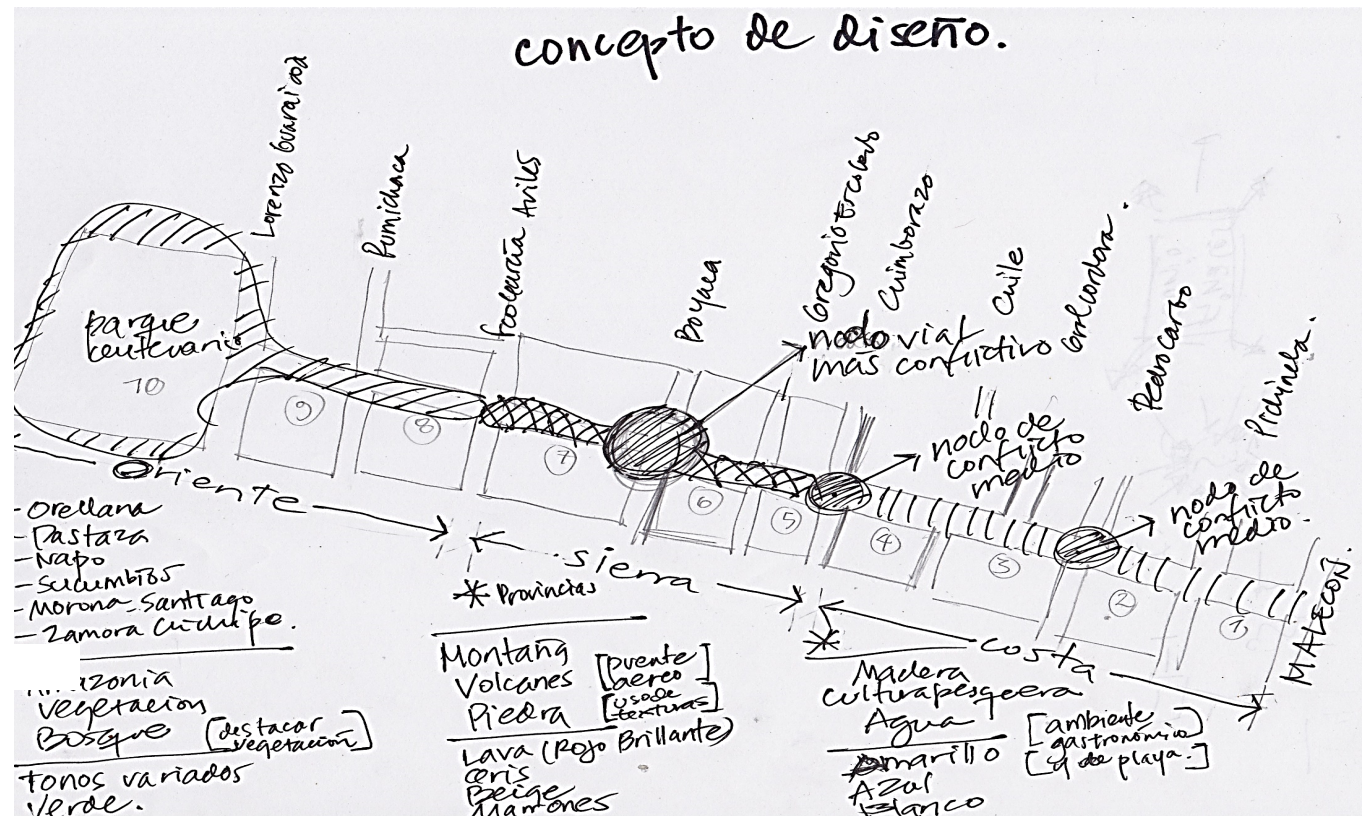 concepto de diseño.
Lorenzo Garaicoa
Rumichaca
Boyaca
Gregorio Escobedo
Chimborazo
Chile
Gral Cordova.
Pedro Carbo
Pichincha.
MALECON.
parque
centenario
10
9
8
7
6
5
4
3
2
1
nodo vial
más conflictivo
nodo de
conflicto
medio
nodo de
conflicto
medio.
Oriente
- Orellana
- Pastaza
- Napo
- Sucumbios
- Morona Santiago
- Zamora Chinchipe.
Amazonia
Vegetacion
Bosque [destacar
vegetación]
Tonos variados
Verde.
sierra
* Provincias
Montaña
Volcanes [puente
aereo]
Piedra [uso de
texturas]
Lava (Rojo Brillante)
Gris
Beige
Marrones
costa
*
Madera
cultura pesquera
Agua
[ambiente
gastronomico]
[y de playa.]
Amarillo
Azul
Blanco